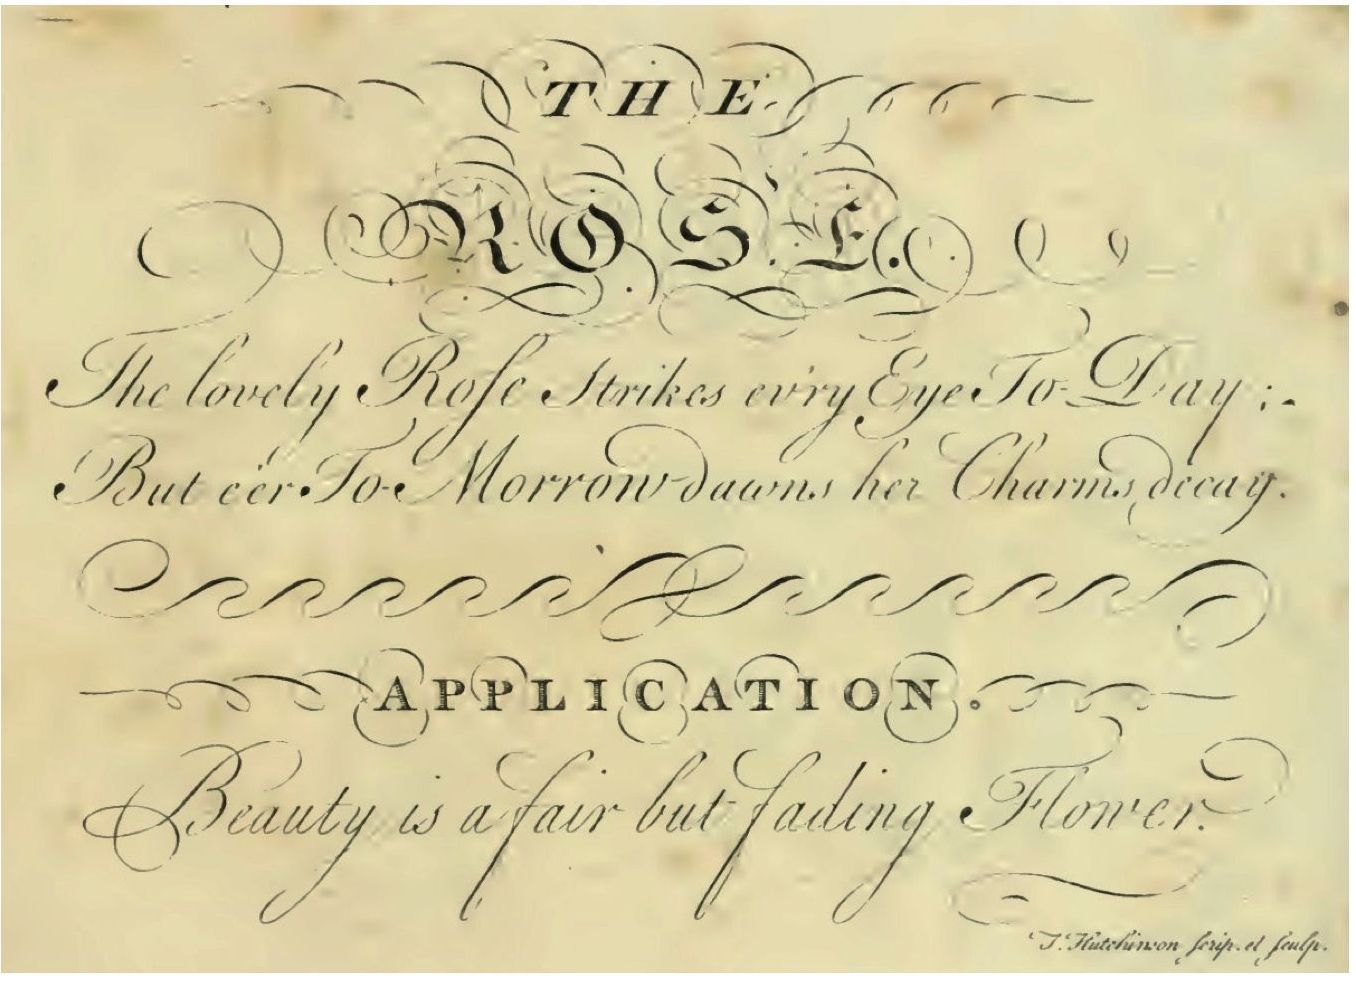 THE
ROSE.
The lovely Roſe Strikes ev'ry Eye To-Day;-
But e'er To-Morrow dawns her Charms decay.
APPLICATION.
Beauty is a fair but fading Flower.
T. Hutchinson ſcrip. et ſculp.